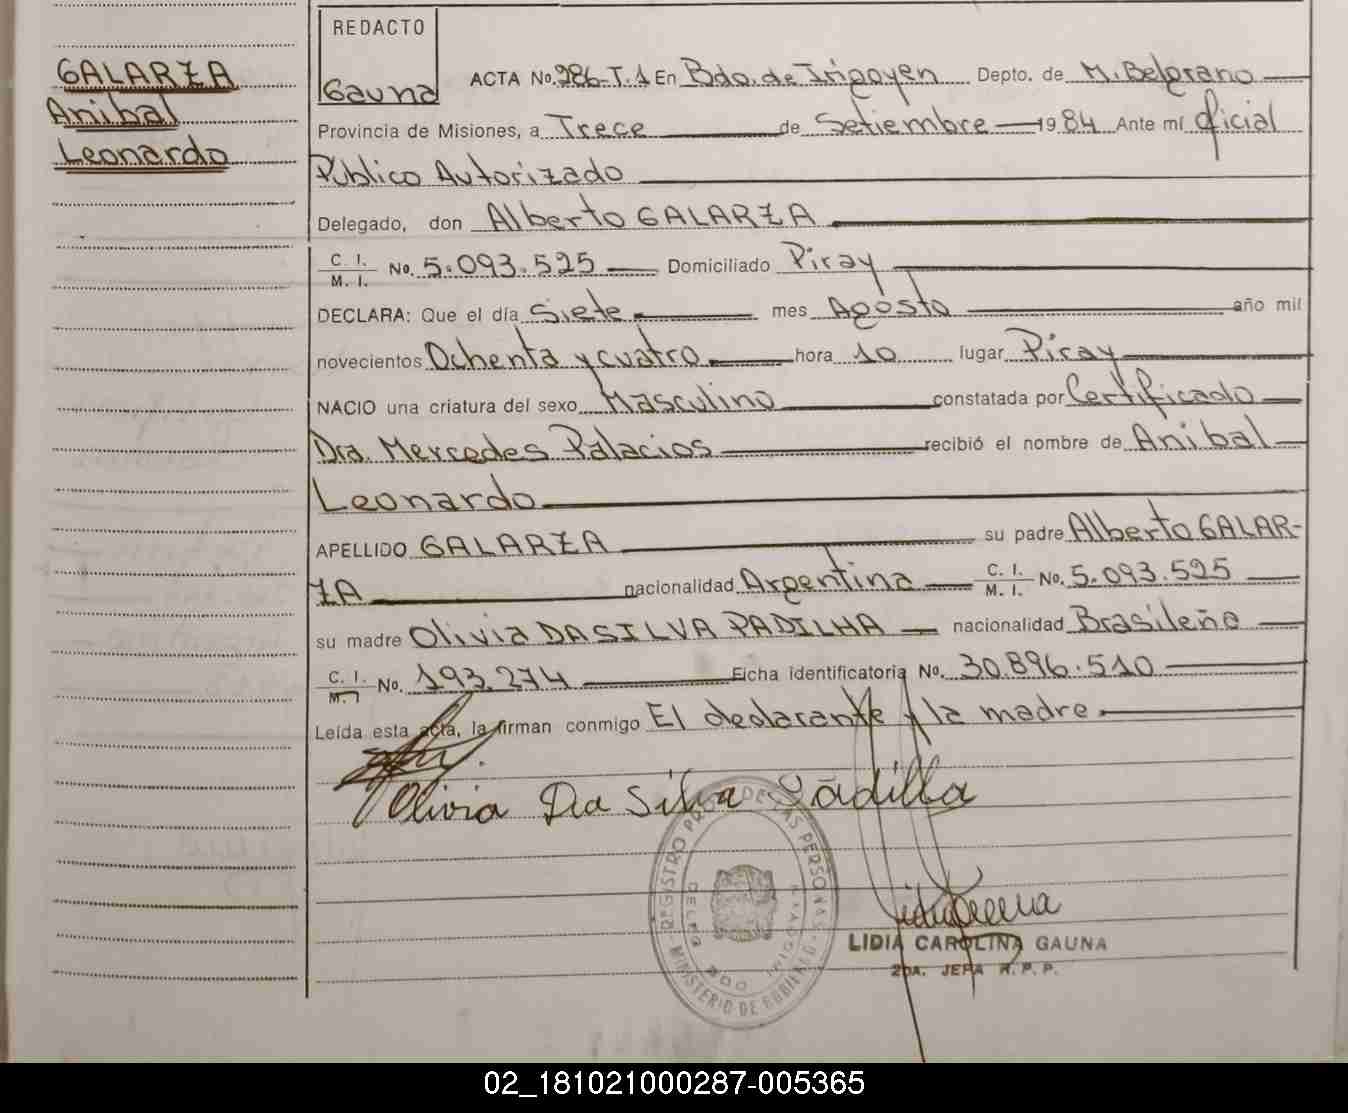 GALARZA
Anibal
Leonardo
REDACTO
Gauna
ACTA No. 286-T.1 En Bdo. de Irigoyen Depto. de M. Belgrano
Provincia de Misiones, a Trece de Setiembre 1984 Ante mí Oficial
Publico Autorizado
Delegado, don Alberto GALARZA
C. I.
M. I. No. 5.093.525 Domiciliado Piray
DECLARA: Que el día Siete mes Agosto año mil
novecientos Ochenta y cuatro hora 10 lugar Piray
NACIO una criatura del sexo Masculino constatada por Certificado
Dra. Mercedes Palacios recibió el nombre de Anibal
Leonardo
APELLIDO GALARZA su padre Alberto GALAR-
ZA nacionalidad Argentina C. I. M. I. No. 5.093.525
su madre Olivia DA SILVA PADILHA nacionalidad Brasileña
C. I. M. I. No. 193.274 Ficha identificatoria No. 30.896.510
Leída esta acta, la firman conmigo El declarante y la madre
Olivia Da Silva Padilla
REGISTRO PROV. DE LAS PERSONAS
MINISTERIO DE GOBIERNO
LIDIA CAROLINA GAUNA
2DA. JEFA R. P. P.
02_181021000287-005365